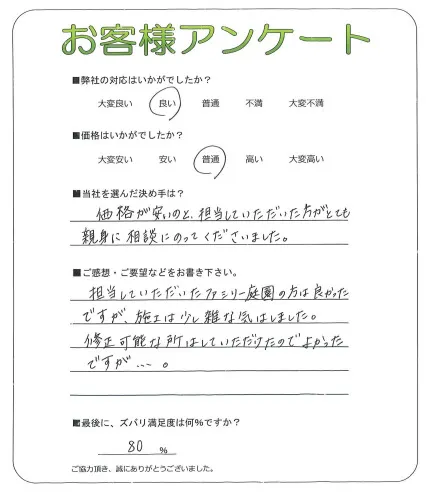 お客様アンケート
■弊社の対応はいかがでしたか？
大変良い 良い 普通 不満 大変不満
■価格はいかがでしたか？
大変安い 安い 普通 高い 大変高い
■当社を選んだ決め手は？
価格が安いのと、担当していただいた方がとても
親身に相談にのってくださいました。
■ご感想・ご要望などをお書き下さい。
担当していただいたファミリー庭園の方は良かった
ですが、施工は少し雑な気はしました。
修正可能な所はしていただけたのでよかった
ですが…。
■最後に、ズバリ満足度は何％ですか？
80 ％
ご協力頂き、誠にありがとうございました。